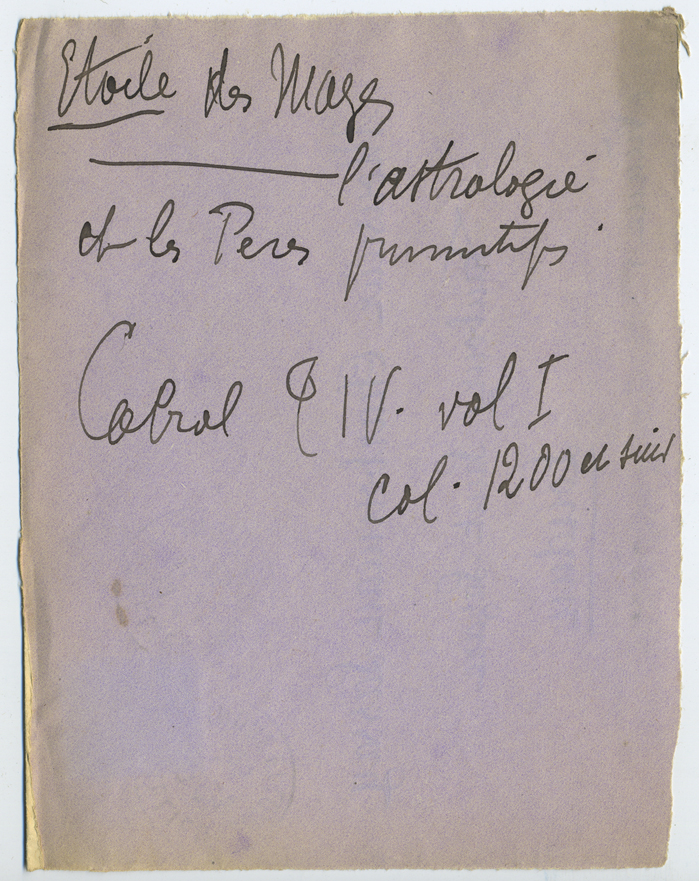 Etoile des Mages
l'astrologie
et les Peres primitifs
Cabrol T IV. vol I
col. 1200 et suiv